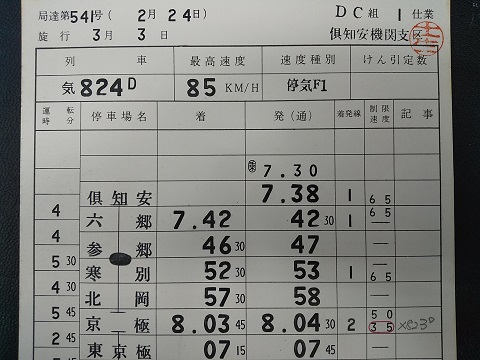 局達第541号 (2月24日) DC組 1仕業
施行 3月3日 倶知安機関支区
列車 最高速度 速度種別 けん引定数
気824D 85 KM/H 停気F1
運転時分 停車場名 着 発(通) 着発線 制限速度 記事
7.30
倶知安 7.38 1 65
4
六郷 7.42 42 30 1 65
4
参郷 46 30 47 —
5 30
寒別 52 30 53 1 65
4 30
北岡 57 30 58 —
5 45
京極 8.03 45 8.04 30 2 50 35 ×823D
2 45
東京極 07 15 07 30 —